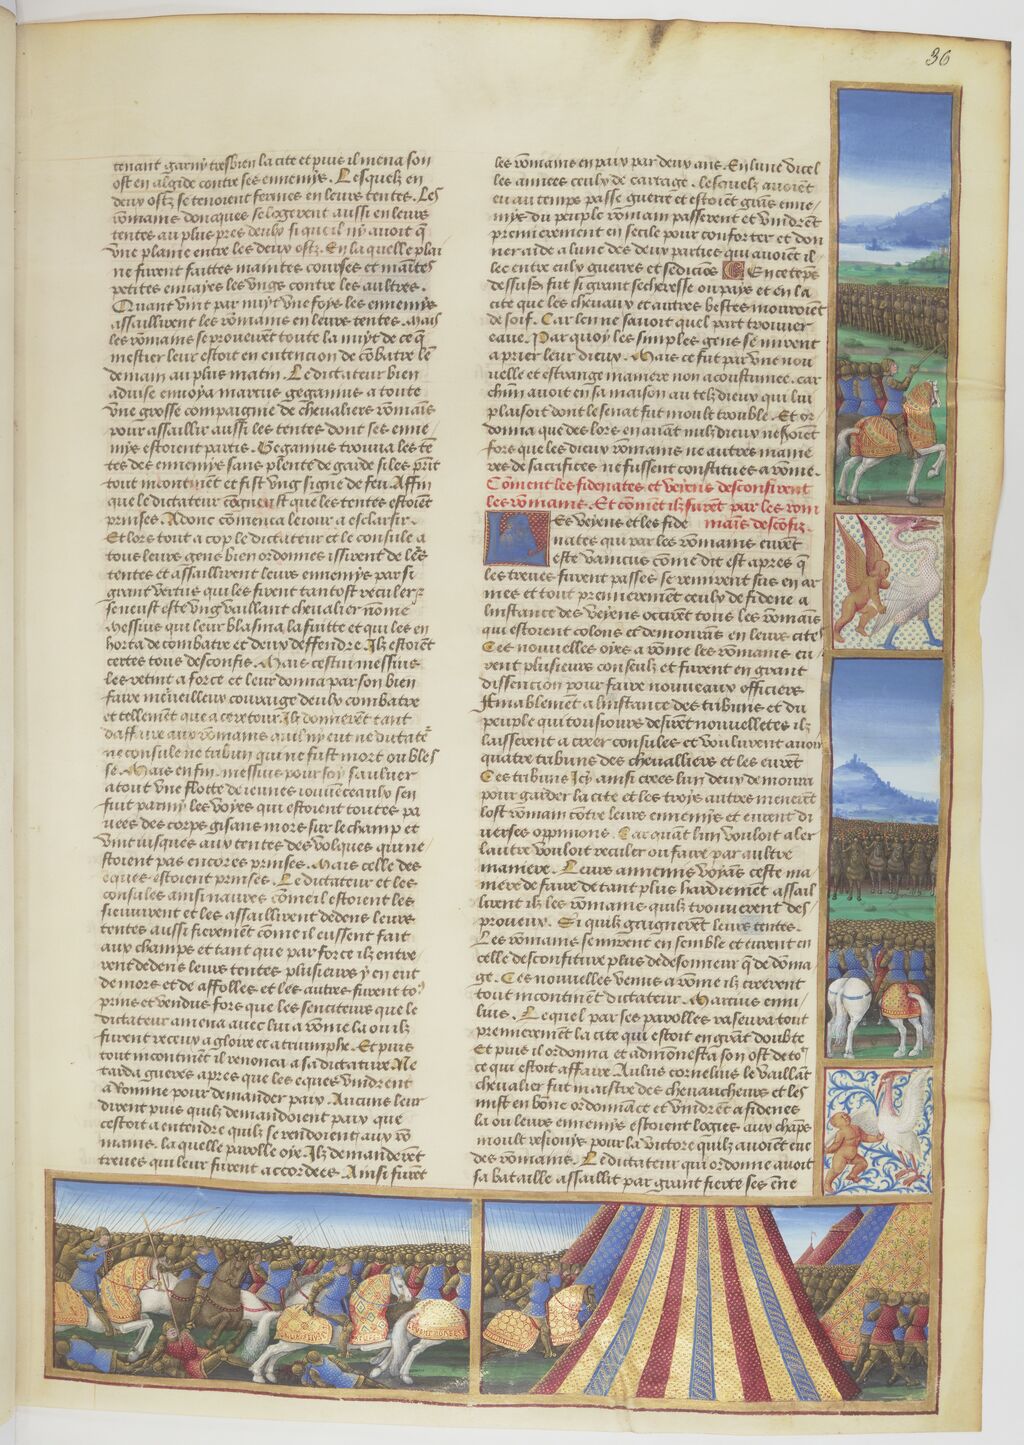 36
tenant garny tresbien la cite et puis il mena son
ost en algide contre ses ennemys. Lesquelz en
deux ostz se tenoient fermes en leurs tentes. Les
rōmains doncques se logerent aussi en leurs
tentes au plus pres deulx si que il ny auoit q̄
vne plaine entre les deux ostz. En laquelle plai
ne furent faittes maintes courses et maītes
petites enuayes les vngs contre les aultres.
Quant vint par nuyt vne foys les ennemys
assaillirent les rōmains en leurs tentes. Mais
les rōmains se prouerent toute la nuyt de ce q̄
mestier leur estoit en entencion de cōbatre le
demain au plus matin. Le dictateur bien
aduise enuoya marcus geganius a toute
vne grosse compaignie de cheualiers rōmais
pour assaillir aussi les tentes dont ses enne
mys estoient partis. Geganius trouua les tē
tes des ennemys sans plente de garde si les prīt
tout incontinēt et fist vng signe de feu. Affin
que le dictateur cōgneust que les tentes estoiēt
prinses. Adonc cōmenca le iour a esclarsir.
Et lors tout a cop le dictateur et le consule a
tous leurs gens bien ordonnes issirent de lēs
tentes et assaillirent leurs ennemys par si
grant vertus quilz les firent tantost reculer
se neust este vng vaillant cheualier nōme
Messius qui leur blasma la fuitte et qui les en
horta de combatre et deulx deffendre. Ilz estoiēt
certes tous desconfis. Mais cestui messius
les retint a force et leur donna par son bien
faire merueilleux couraige deulx combatre
et tellement que a ce retour Ilz donnerēt tant
daffaire aux rōmains quil ny eut ne dictatē
ne consule ne tribun qui ne fust mort ou bles
se. Mais en fin messius pour soy sauluer
a tout vne flotte de ieunes iouuenceaulx sen
fuit parmy les voyes qui estoient toutes pa
uees des corps gisans mors sur le champ et
vint iusques aux tentes des volques qui ne
stoient pas encores prinses. Mais celle des
eques estoient prinses. Le dictateur et les
consules ainsi naures cōme il estoient les
sieuuirent et les assaillirent dedens leurs
tentes aussi fierement cōme il eussent fait
aux champs et tant que par force ilz entre
rent dedens leurs tentes plusieurs y en eut
de mors et de affolles et les autres furent to9
prins et vendus fors que les senateurs que le
dictateur amena auec lui a rōme la ou ilz
furent receuz a gloire et a triumphe. Et puis
tout incontinēt il renonca a sa dictature. Ne
tarda gueres apres que les eques vindrent
a Romme pour demander paix. Aucuns leur
dirent puis quilz demandoient paix que
cestoit a entendre quilz se rendoient aux rō
mains. la quelle parolle oye. Ilz demanderēt
treues qui leur furent accordees. Ainsi furēt
les rōmains en paix par deux ans. En lune dicel
les annees ceulx de cartage. lesquelz auoiēt
eu au temps passe guerre et estoiēt grās enne
mys du peuple rōmain passerent et vindrēt
premierement en secile pour conforter et don
ner aide a lune des deux parties qui auoiēt il
lec entre eulx guerres et sedicōs En ce tēps
dessusd fut si grant secheresse ou pays et en la
cite que les cheuaux et autres bestes mouroiēt
de soif. Car len ne sauoit quel part trouuer
eaue. Par quoy les simples gens se mirent
a prier leur dieux. Mais ce fut par vne nou
uelle et estrange maniere non acoustumee. car
chūn auoit en sa maison au telz dieux qui lui
plaisoit dont le senat fut moult trouble. Et or
donna que des lors en auant nulz dieux ne soiēt
fors que les dieux rōmains ne autres manie
res de sacrifices ne fussent constitues a rōme.
Cōment les fidenates et veyens desconfirent
les rōmains. Et cōment ilz furēt par les rom
mains descofiz.
Les veyens et les fide
nates qui par les rōmains eurēt
este vaincus cōme dit est apres q̄
les treues furent passes se remirent sus en ar
mes et tout premierement ceulx de fidene a
linstance des veyens occirēt tous les rōmaīs
qui estoient colons et demourās en leurs cites
Ces nouuelles oyes a rōme les rōmains eu
rent plusieurs conseulz et furent en grant
dissencion pour faire nouueaux officiers
Finablement a linstance des tribuns et du
peuple qui tousiours desirēt nouuelletes ilz
laisserent a creer consules et voulurent auoir
quatre tribuns des chevalliers et les eurēt
Ces tribuns icy ainsi crees lun deulx demoura
pour garder la cite et les troys autres menerēt
lost rōmain cōtre leurs ennemys et eurent di
uerses oppinions. Car quāt lun vouloit aler
lautre vouloit reculer ou faire par aultre
maniere. Leurs annemis voyās ceste ma
niere de faire de tant plus hardiement assail
lirent ilz les rōmains quilz trouuerent des
proueux. Si quilz gaignerēt leurs tentes.
Les rōmains se mirent en semble et eurent en
celle desconfiture plus de deshonneur q̄ de dōma
ge. Ces nouuelles venues a rōme il creerent
tout incontinēt dictateur. Marcus emi
lius. Lequel par ses parolles rasseura tout
premierement la cite qui estoit en grāt doubte
Et puis il ordonna et admonnesta son ost de to9
ce qui estoit affaire. Aulus cornelius le vaillāt
cheualier fut maistre des cheuaucheurs et les
mist en bōne ordonnāce et vindrēt a fidenes
la ou leurs ennemys estoient logies aux chāps
moult resioyis pour la victore quilz auoiēt eue
des rōmains. Le dictateur qui ordonne auoit
sa bataille assaillit par grant fierte ses ēne